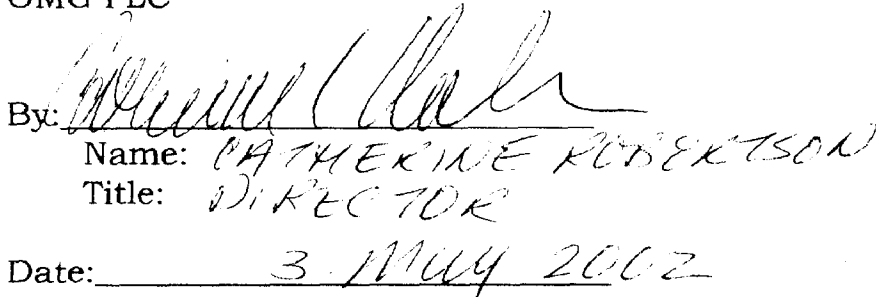 OMG PLC
By:
Name: CATHERINE ROBERTSON
Title: DIRECTOR
Date: 3 May 2002